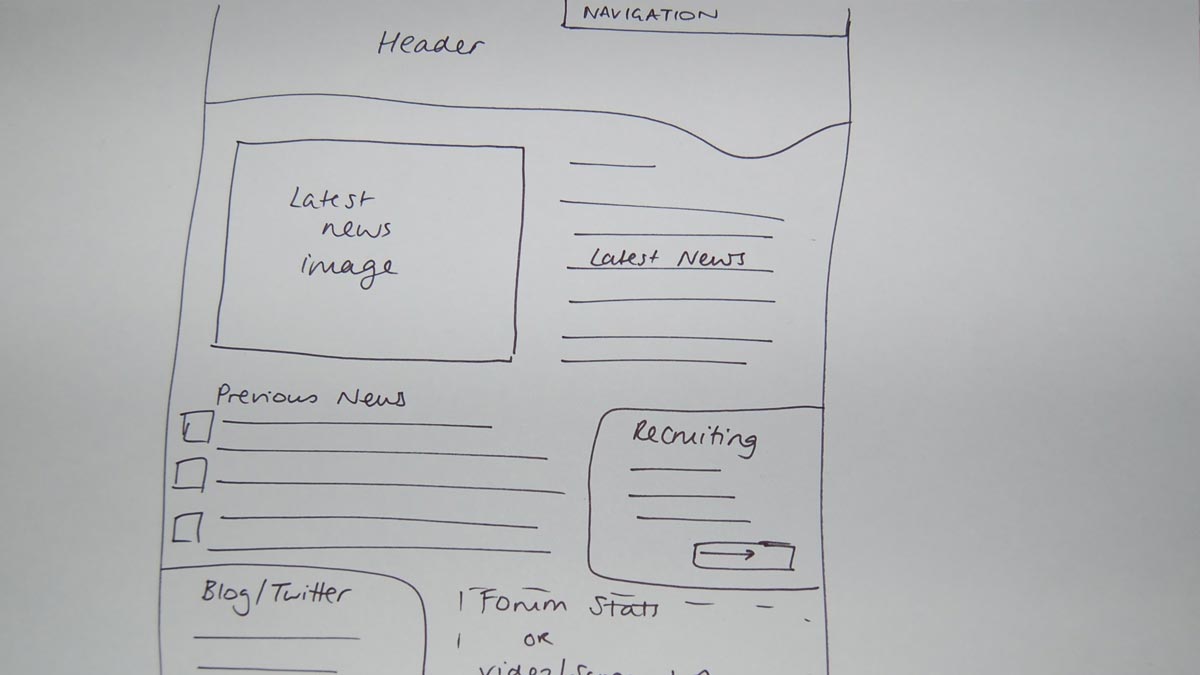 NAVIGATION
Header
Latest
news
image
Latest News
Previous News
Recruiting
Blog/Twitter
Forum Stats
OR
video/